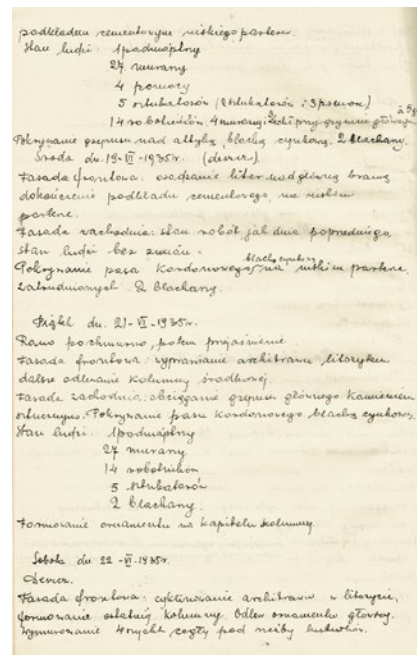 podkładu cementowym niskiego parteru.
Stan ludzi: 1 podmajstry
27 murarzy
4 pomocy
5 sztukatorów (2 sztukatorów i 3 pomoc.)
14 robotników. 4 murarzy i przy gzymsie głównym
à 5 g
Pokrywanie gzymsu nad attyką blachą cynkową. 2 blacharzy.
Środa dn. 19-VI-1935r. (deszcz).
Fasada frontowa: osadzanie liter nad główną bramą
dokończenie podkładu cementowego, na niskim
parterze.
Fasada zachodnia: stan robót jak dnia poprzedniego
Stan ludzi bez zmian.
Pokrywanie pasa kordonowego blachą cynkową na niskim parterze.
zatrudnionych 2 blacharzy.
Piątek dn. 21-VI-1935r.
Rano pochmurno, potem przejaśnienie.
Fasada frontowa: wyprawianie architrawu litorytem
dalsze odlewanie kolumny środkowej.
Fasada zachodnia: obciąganie gzymsu głównego kamieniem
sztucznym. Pokrywanie pasa kordonowego blachą cynkową.
Stan ludzi: 1 podmajstry
27 murarzy
14 robotników
5 sztukatorów
2 blacharzy.
Formowanie ornamentu na kapitelu kolumny.
Sobota dn. 22-VI-1935r.
Deszcz.
Fasada frontowa: cyklinowanie architrawu w litorycie,
formowanie ostatniej kolumny. Odlew ornamentu głowicy.
Wymurowanie 4 cegły pod rzeźby